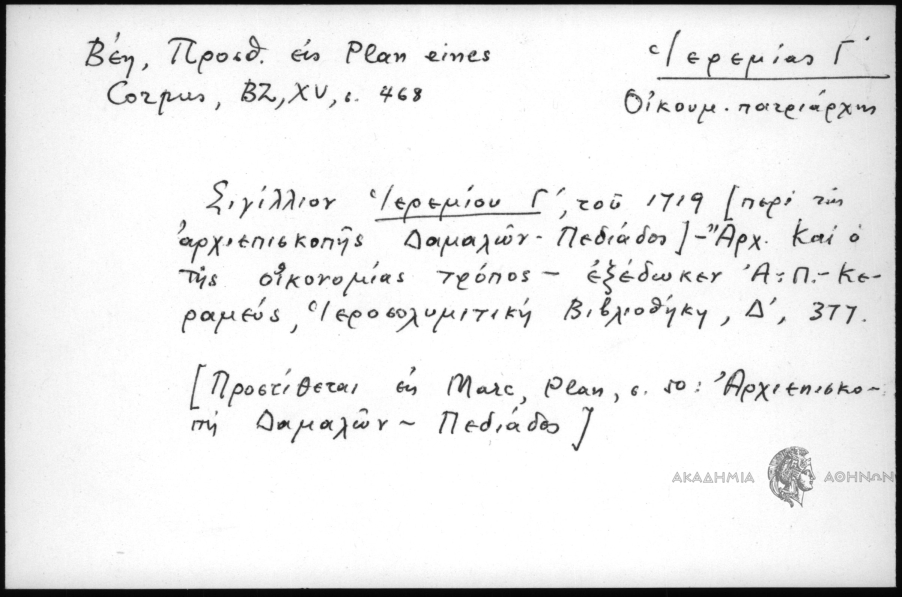 Βέη, Προσθ. εἰς Plan eines
Corpus, BZ, XV, σ. 468
Ἱερεμίας Γ´
Οἰκουμ. πατριάρχης
Σιγίλλιον Ἱερεμίου Γ´, τοῦ 1719 [περὶ τῆς
ἀρχιεπισκοπῆς Δαμαλῶν - Πεδιάδος] - Ἄρχ. Καὶ ὁ
τῆς οἰκονομίας τρόπος - ἐξέδωκεν Ἀ. Π.- Κε-
ραμεύς, Ἱεροσολυμιτικὴ Βιβλιοθήκη, Δ´, 377.
[Προστίθεται εἰς Marc, Plan, σ. 50: Ἀρχιεπισκο-
πὴ Δαμαλῶν - Πεδιάδος]
ΑΚΑΔΗΜΙΑ ΑΘΗΝΩΝ